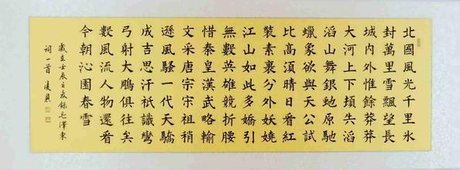 北國風光千里冰
封萬里雪飄望長
城内外惟餘莽莽
大河上下頓失滔
滔山舞銀蛇原馳
蠟象欲與天公試
比高須晴日看紅
裝素裹分外妖嬈
江山如此多嬌引
無數英雄競折腰
惜秦皇漢武略輸
文采唐宗宋祖稍
遜風騷一代天驕
成吉思汗衹識彎
弓射大鵰俱往矣
數風流人物還看
今朝沁園春雪
歲在壬辰錄毛澤東
詞一首